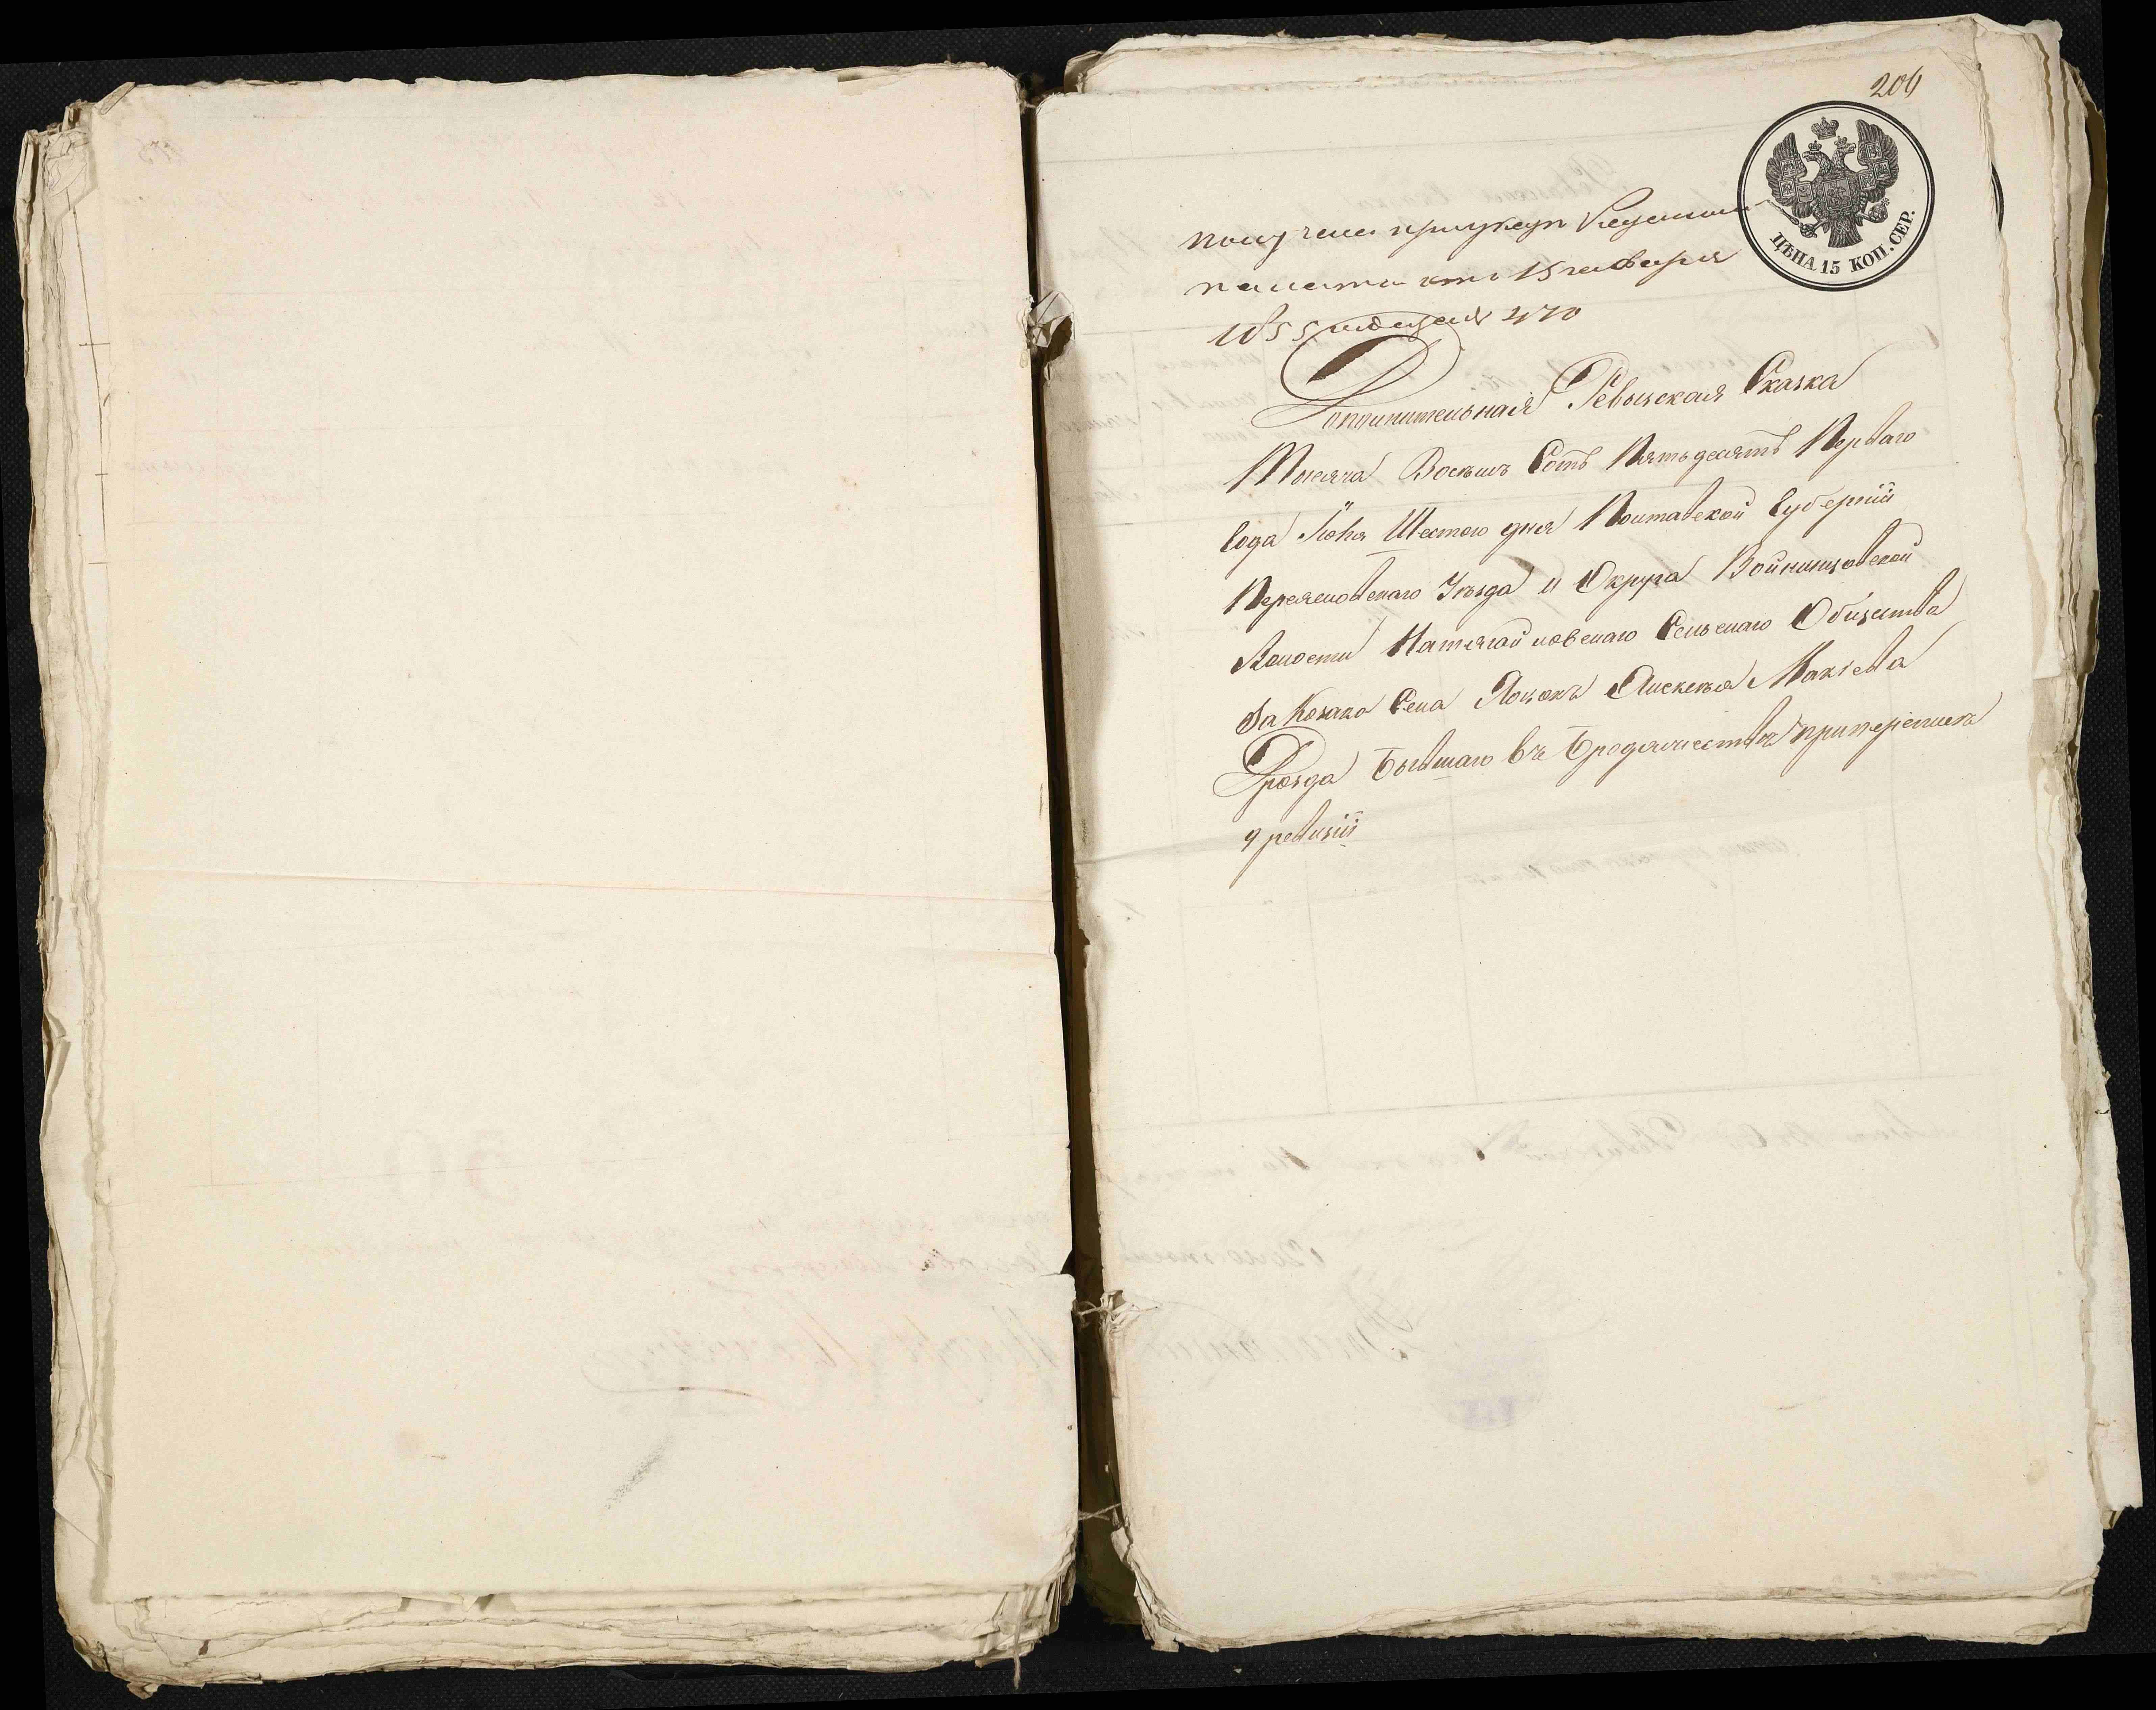 206
ЦѢНА 15 КОП. СЕР.
получена при указѣ Казенной
палаты отъ 15 генваря
1855 года за № 470
Дополнительная Ревызская Сказка
Тысяча Восѣмъ Сотъ Пятьдесятъ Перваго
Года Іюня Шестого дня Полтавской Губерніи
Переясловскаго Уѣзда и Округа Войнинцовской
Волости Натягайловскаго Сельскаго Общества
За Козака Села Алексѣя Макѣева
Дрозда Бывшаго въ Бродяжествѣ при переписѣ
9 ревизіи